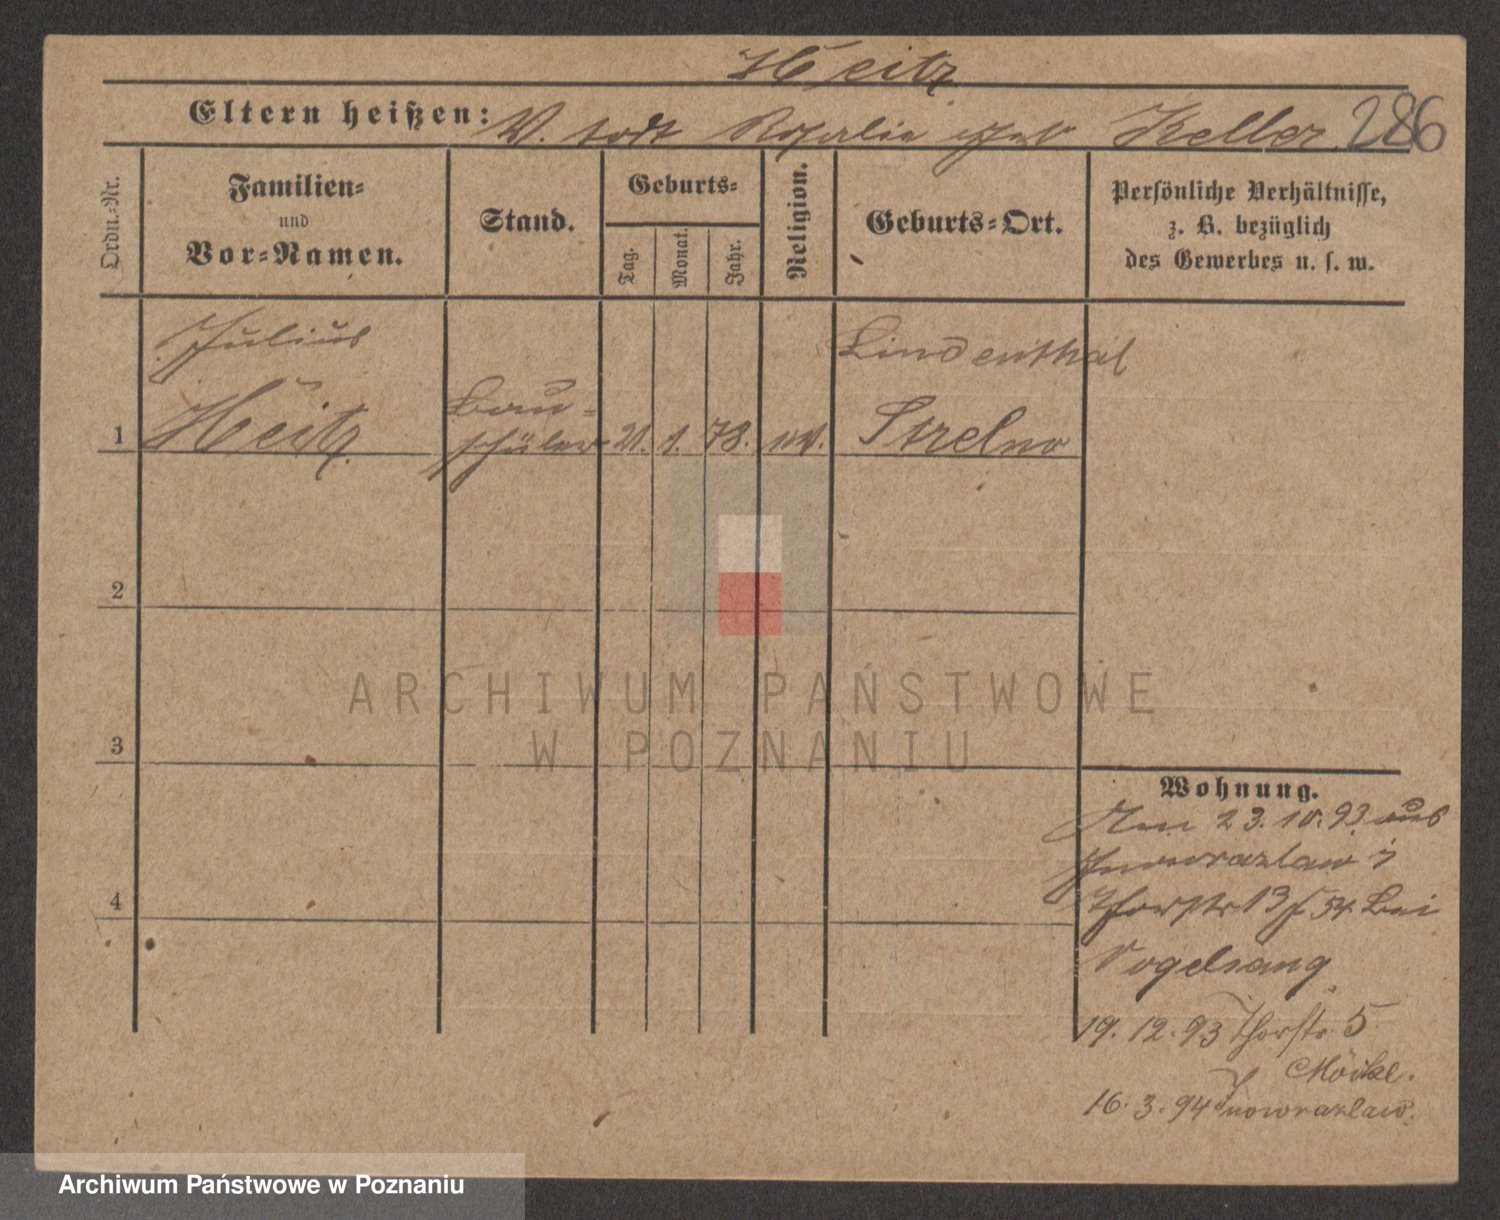 Heitz
Eltern heißen: V. todt Rosalie geb Keller 286
Ordn.-Nr.
Familien-
und
Vor-Namen.
Stand.
Geburts-
Tag.
Monat.
Jahr.
Religion.
Geburts-Ort.
Persönliche Verhältnisse,
z. B. bezüglich
des Gewerbes u. s. w.
Julius
Heitz
Bau-
schüler
1
21. 1. 78. ev.
Lindenthal
Strelno
2
3
4
ARCHIWUM PAŃSTWOWE
W POZNANIU
Wohnung.
23. 10. 93 aus
Inowrazlaw
Thorstr 13 bei
Vogelsang
19. 12. 93 Thorstr. 5
16. 3. 94 Inowrazlaw.
Archiwum Państwowe w Poznaniu